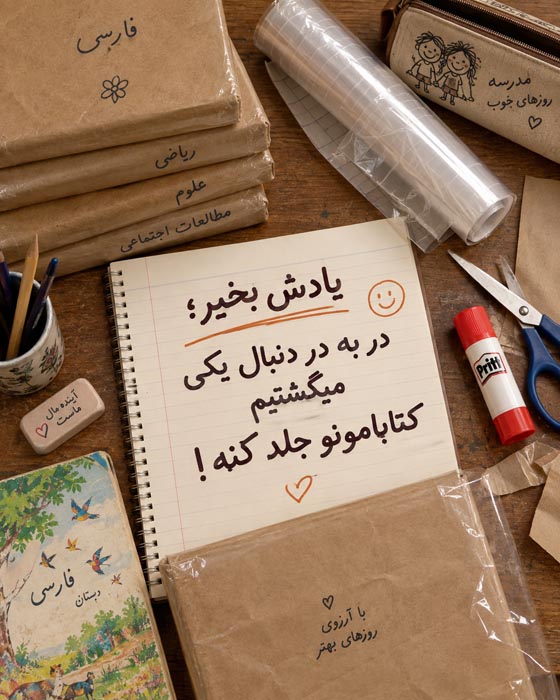 فارسی
ریاضی
علوم
مطالعات اجتماعی
مدرسه
روزهای خوب
یادش بخیر؛
در به در دنبال یکی
میگشتیم
کتابامونو جلد کنه!
Pritt
آینده مال
ماست
فارسی
دبستان
با آرزوی
روزهای بهتر